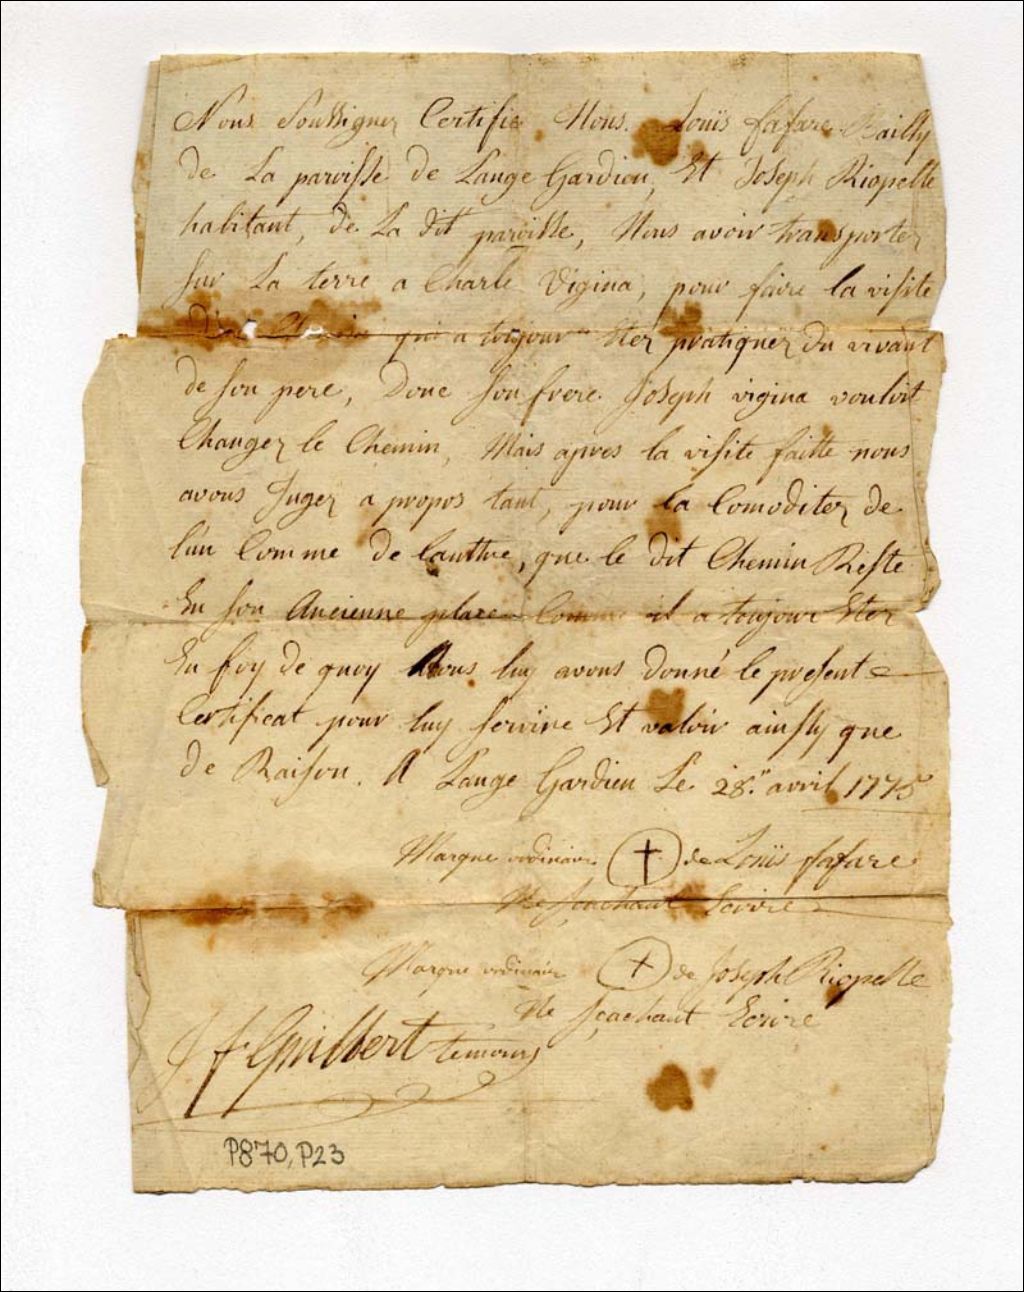 Nous Soussigner Certifie Nous. Louïs fafare Bailly
de La paroisse de Lange Gardien, Et Joseph Riopelle
habitant, de La dit paroisse, Nous avoir transporter
sur La terre a Charle Vigina, pour faire la visite
qui a toujour Eter pratiquer du vivant
de son pere, Donc son frere Joseph vigina vouloit
Changer le Chemin, Mais apres la visite faitte nous
avons Juger a propos tant, pour la Comoditer de
lun Comme de lauttre, que le dit Chemin Reste
En son Ancienne place Comme il a toujour Eter
En foy de quoy Nous luy avons donné le present
Certificat pour luy servire Et valoir ainssy que
de Raison. A Lange Gardien Le 28." avril 1775
Marque ordinaire de Louïs fafare
Ne sçachant Ecrire
Marque ordinair de Joseph Riopelle
Ne sçachant Ecrire
Guilbert temoins
P870, P23